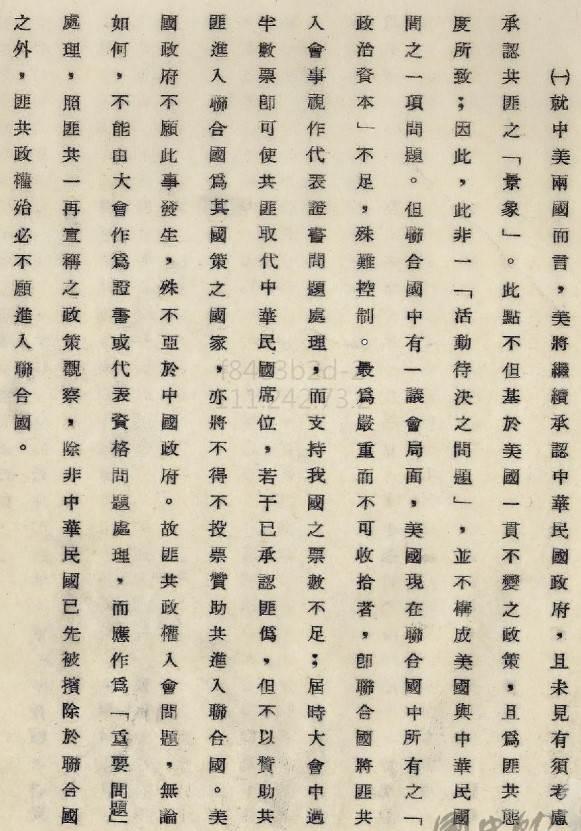 ㈠就中美兩國而言，美將繼續承認中華民國政府，且未見有須考慮
承認共匪之「景象」。此點不但基於美國一貫不變之政策，且爲匪共態
度所致；因此，此非一「活動待決之問題」，並不構成美國與中華民國
間之一項問題。但聯合國中有一議會局面，美國現在聯合國中所有之「
政治資本」不足，殊難控制。最爲嚴重而不可收拾者，卽聯合國將匪共
入會事視作代表證書問題處理，而支持我國之票數不足；屆時大會中過
半數票卽可使共匪取代中華民國席位，若干已承認匪僞，但不以贊助共
匪進入聯合國爲其國策之國家，亦將不得不投票贊助共進入聯合國。美
國政府不願此事發生，殊不亞於中國政府。故匪共政權入會問題，無論
如何，不能由大會作爲證書或代表資格問題處理，而應作爲「重要問題」
處理，照匪共一再宣稱之政策觀察，除非中華民國已先被擯除於聯合國
之外，匪共政權殆必不願進入聯合國。